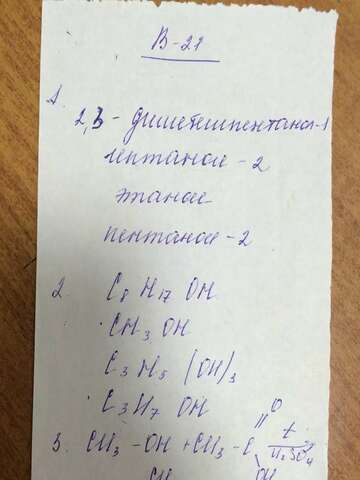 В-21
1.
2,3-диметилпентанол-1
гептанол-2
этанол
пентанол-2
2. C8 H17 OH
CH3 OH
C3 H5 (OH)3
C3 H7 OH
O
3. CH3 -OH + CH3 - C t
H2SO4
OH